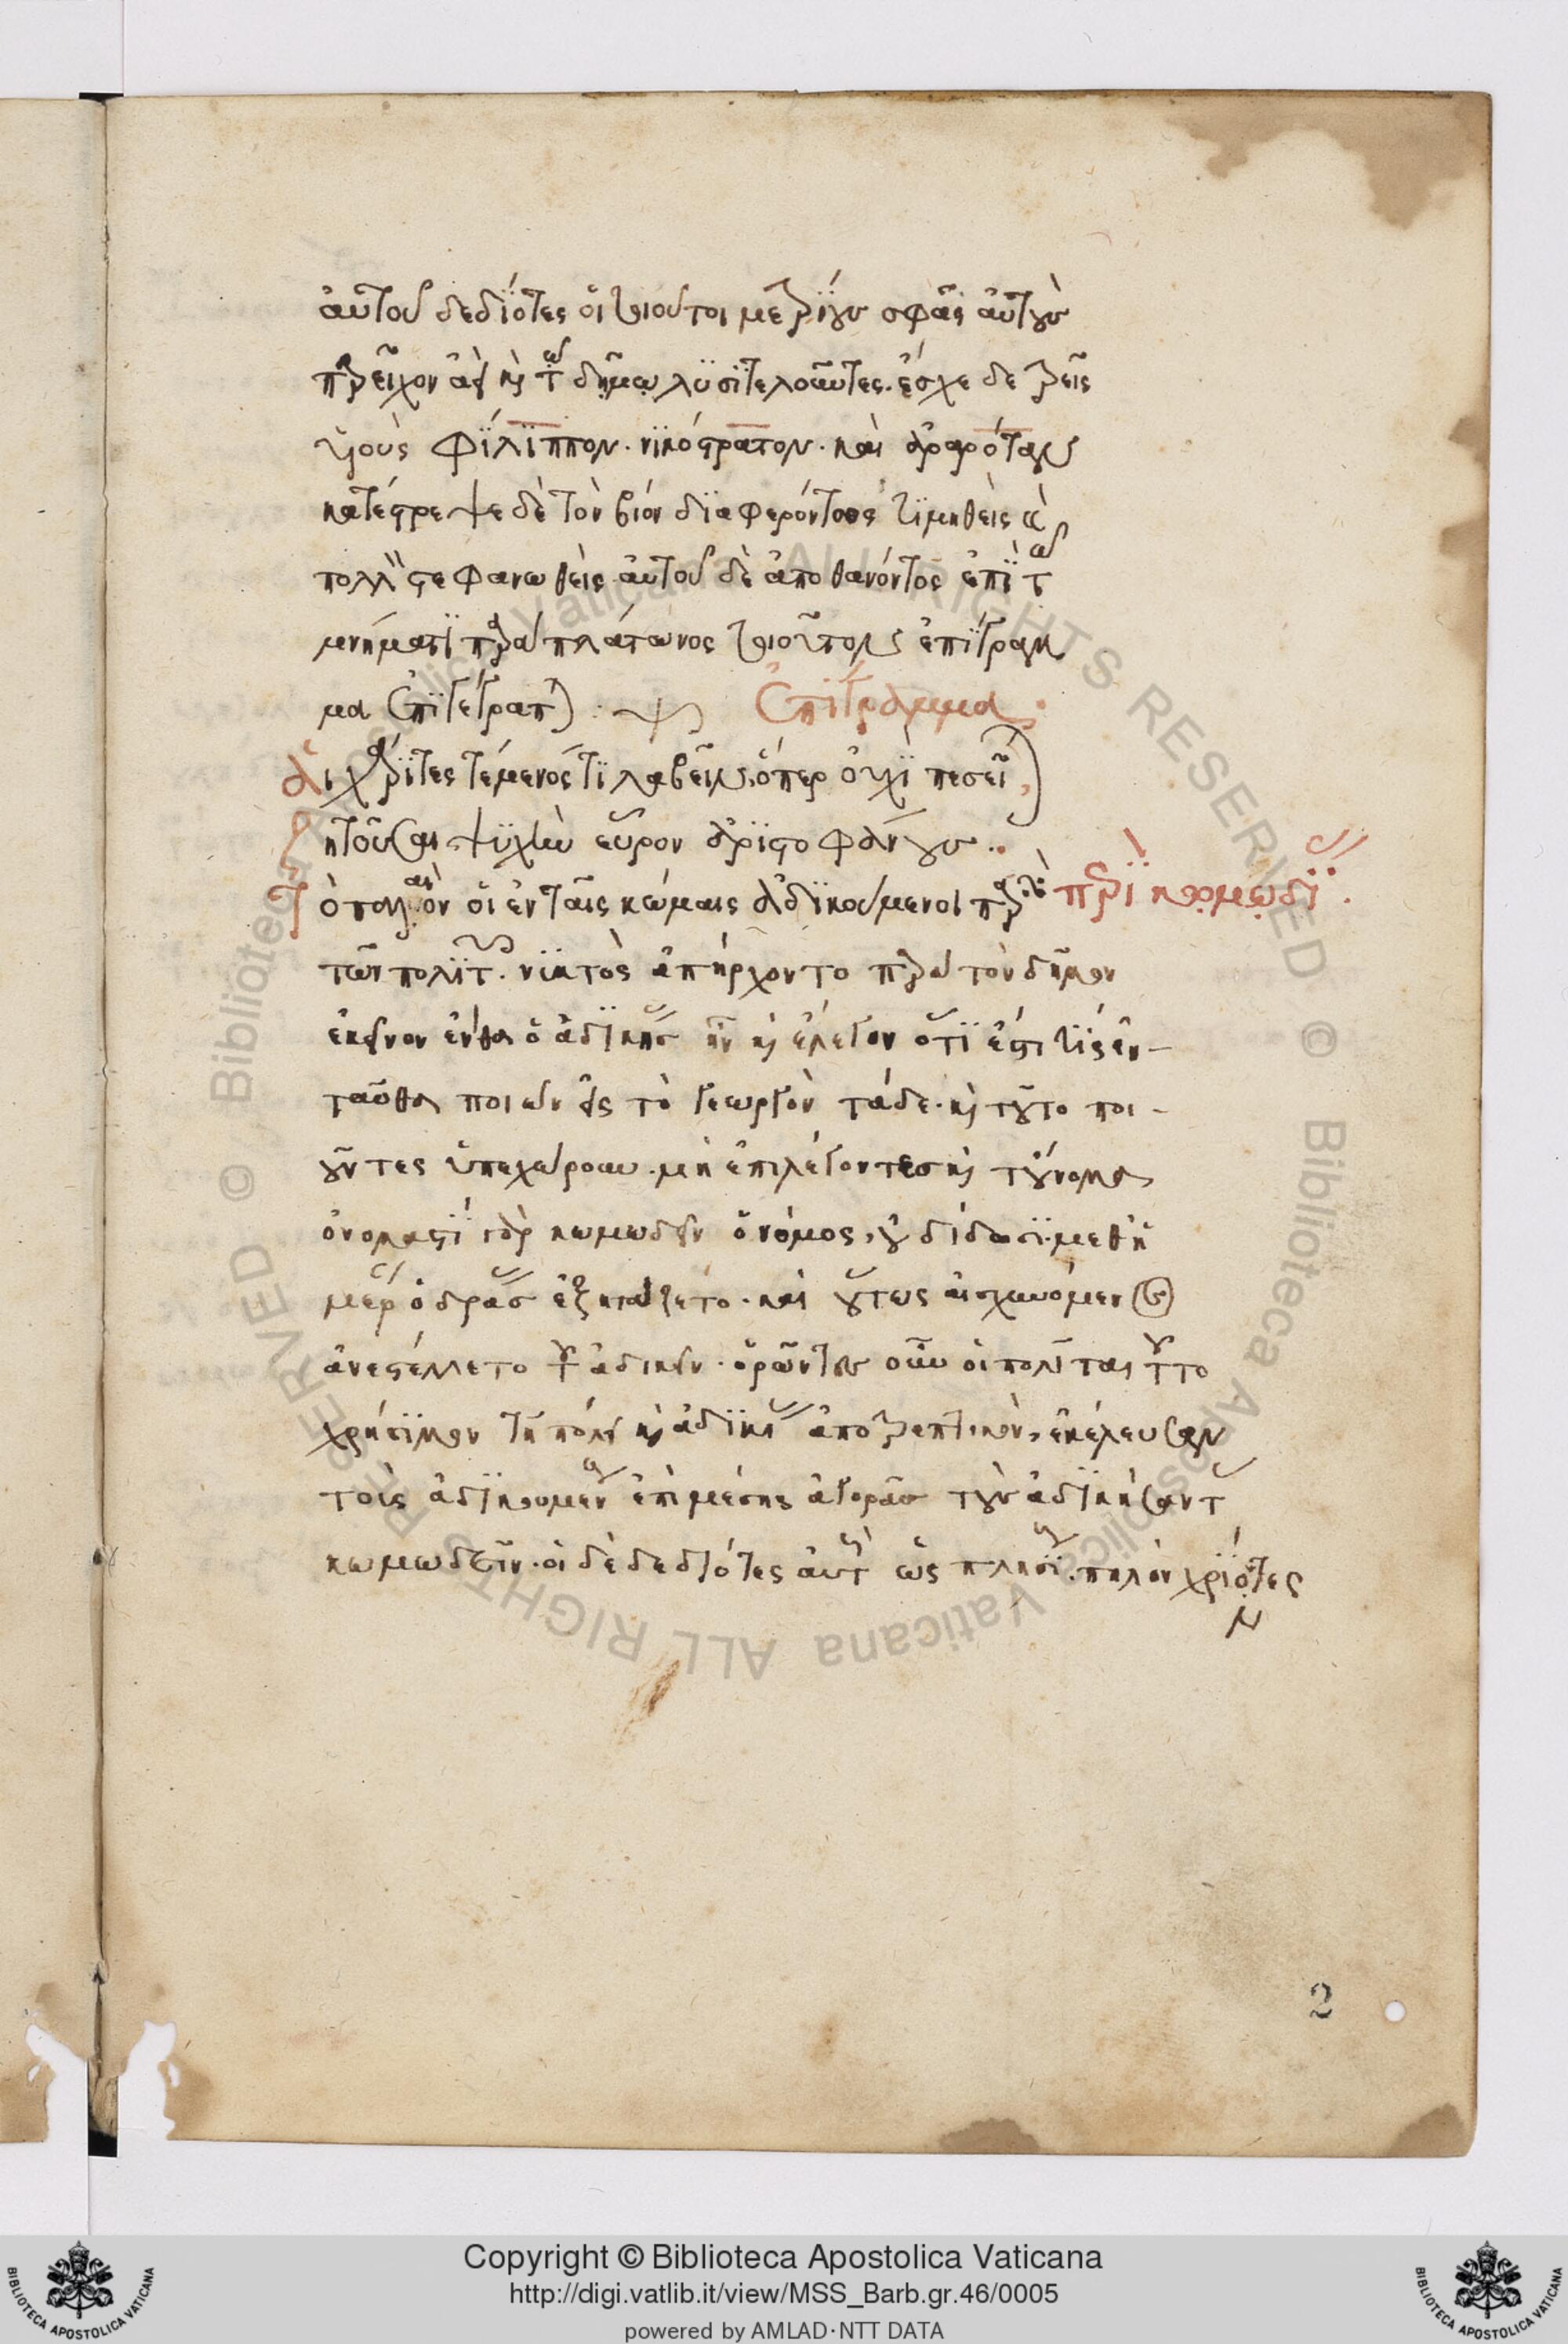 αὐτοῦ δεδιότες οἱ τοιοῦτοι μετρίους σφᾶς αὐτοὺς
παρεῖχον ἀεὶ καὶ τῷ δήμῳ λυσιτελοῦντες. ἔσχε δὲ τρεῖς
υἱοὺς φίλιππον. νικόστρατον. καὶ ἀραρότα
κατέστρεψε δὲ τὸν βίον διαφερόντως τιμηθεὶς
στεφανωθείς. αὐτοῦ δὲ ἀποθανόντος ἐπὶ τῷ
μνήματι παρὰ πλάτωνος τοιοῦτον ἐπίγραμ
μα ἐπιγέγραπται : ἐπίγραμμα.
Αἱ χάριτες τέμενός τι λαβεῖν, ὅπερ οὐχὶ πεσεῖται,
ζητοῦσαι ψυχὴν εὗρον ἀριστοφάνους
Τὸ παλαιὸν οἱ ἐν ταῖς κώμαις ἀδικούμενοι παρὰ περὶ κωμωδίας.
τῶν πολιτῶν. νικτὸς ἀπήρχοντο παρὰ τὸν δῆμον
ἐκεῖνον ἔνθα ὁ ἀδικήσας ἦν καὶ ἔλεγον ὅτι ἔστι τὶς ἐν-
ταῦθα ποιῶν εἰς τὸ γεωργὸν τάδε. καὶ τοῦτο ποι-
οῦντες ὑπεχώρουν. μὴ ἐπιλέγοντες καὶ τοὔνομα
ὀνομαστὶ γὰρ κωμωδεῖν ὁ νόμος, οὐ δίδωσι. μεθ' ἡ
μέραν ὁ δράσας ἐξητάζετο. καὶ οὕτως αἰσχυνόμενος
ἀνεστέλλετο τοῦ ἀδικεῖν. ὁρῶντες οὖν οἱ πολῖται τοῦτο
χρήσιμον τῇ πόλει καὶ ἀδικίας ἀποτρεπτικὸν, ἐκέλευσαν
τοῖς ἀδικουμένους ἐπὶ μέσης ἀγορᾶς τοὺς ἀδικήσαντας
κωμωδεῖν. οἱ δὲ δεδιότες αὐτοὺς ὡς πλουσίους. πηλὸν χρίοντες
2
Copyright © Biblioteca Apostolica Vaticana
http://digi.vatlib.it/view/MSS_Barb.gr.46/0005
powered by AMLAD·NTT DATA